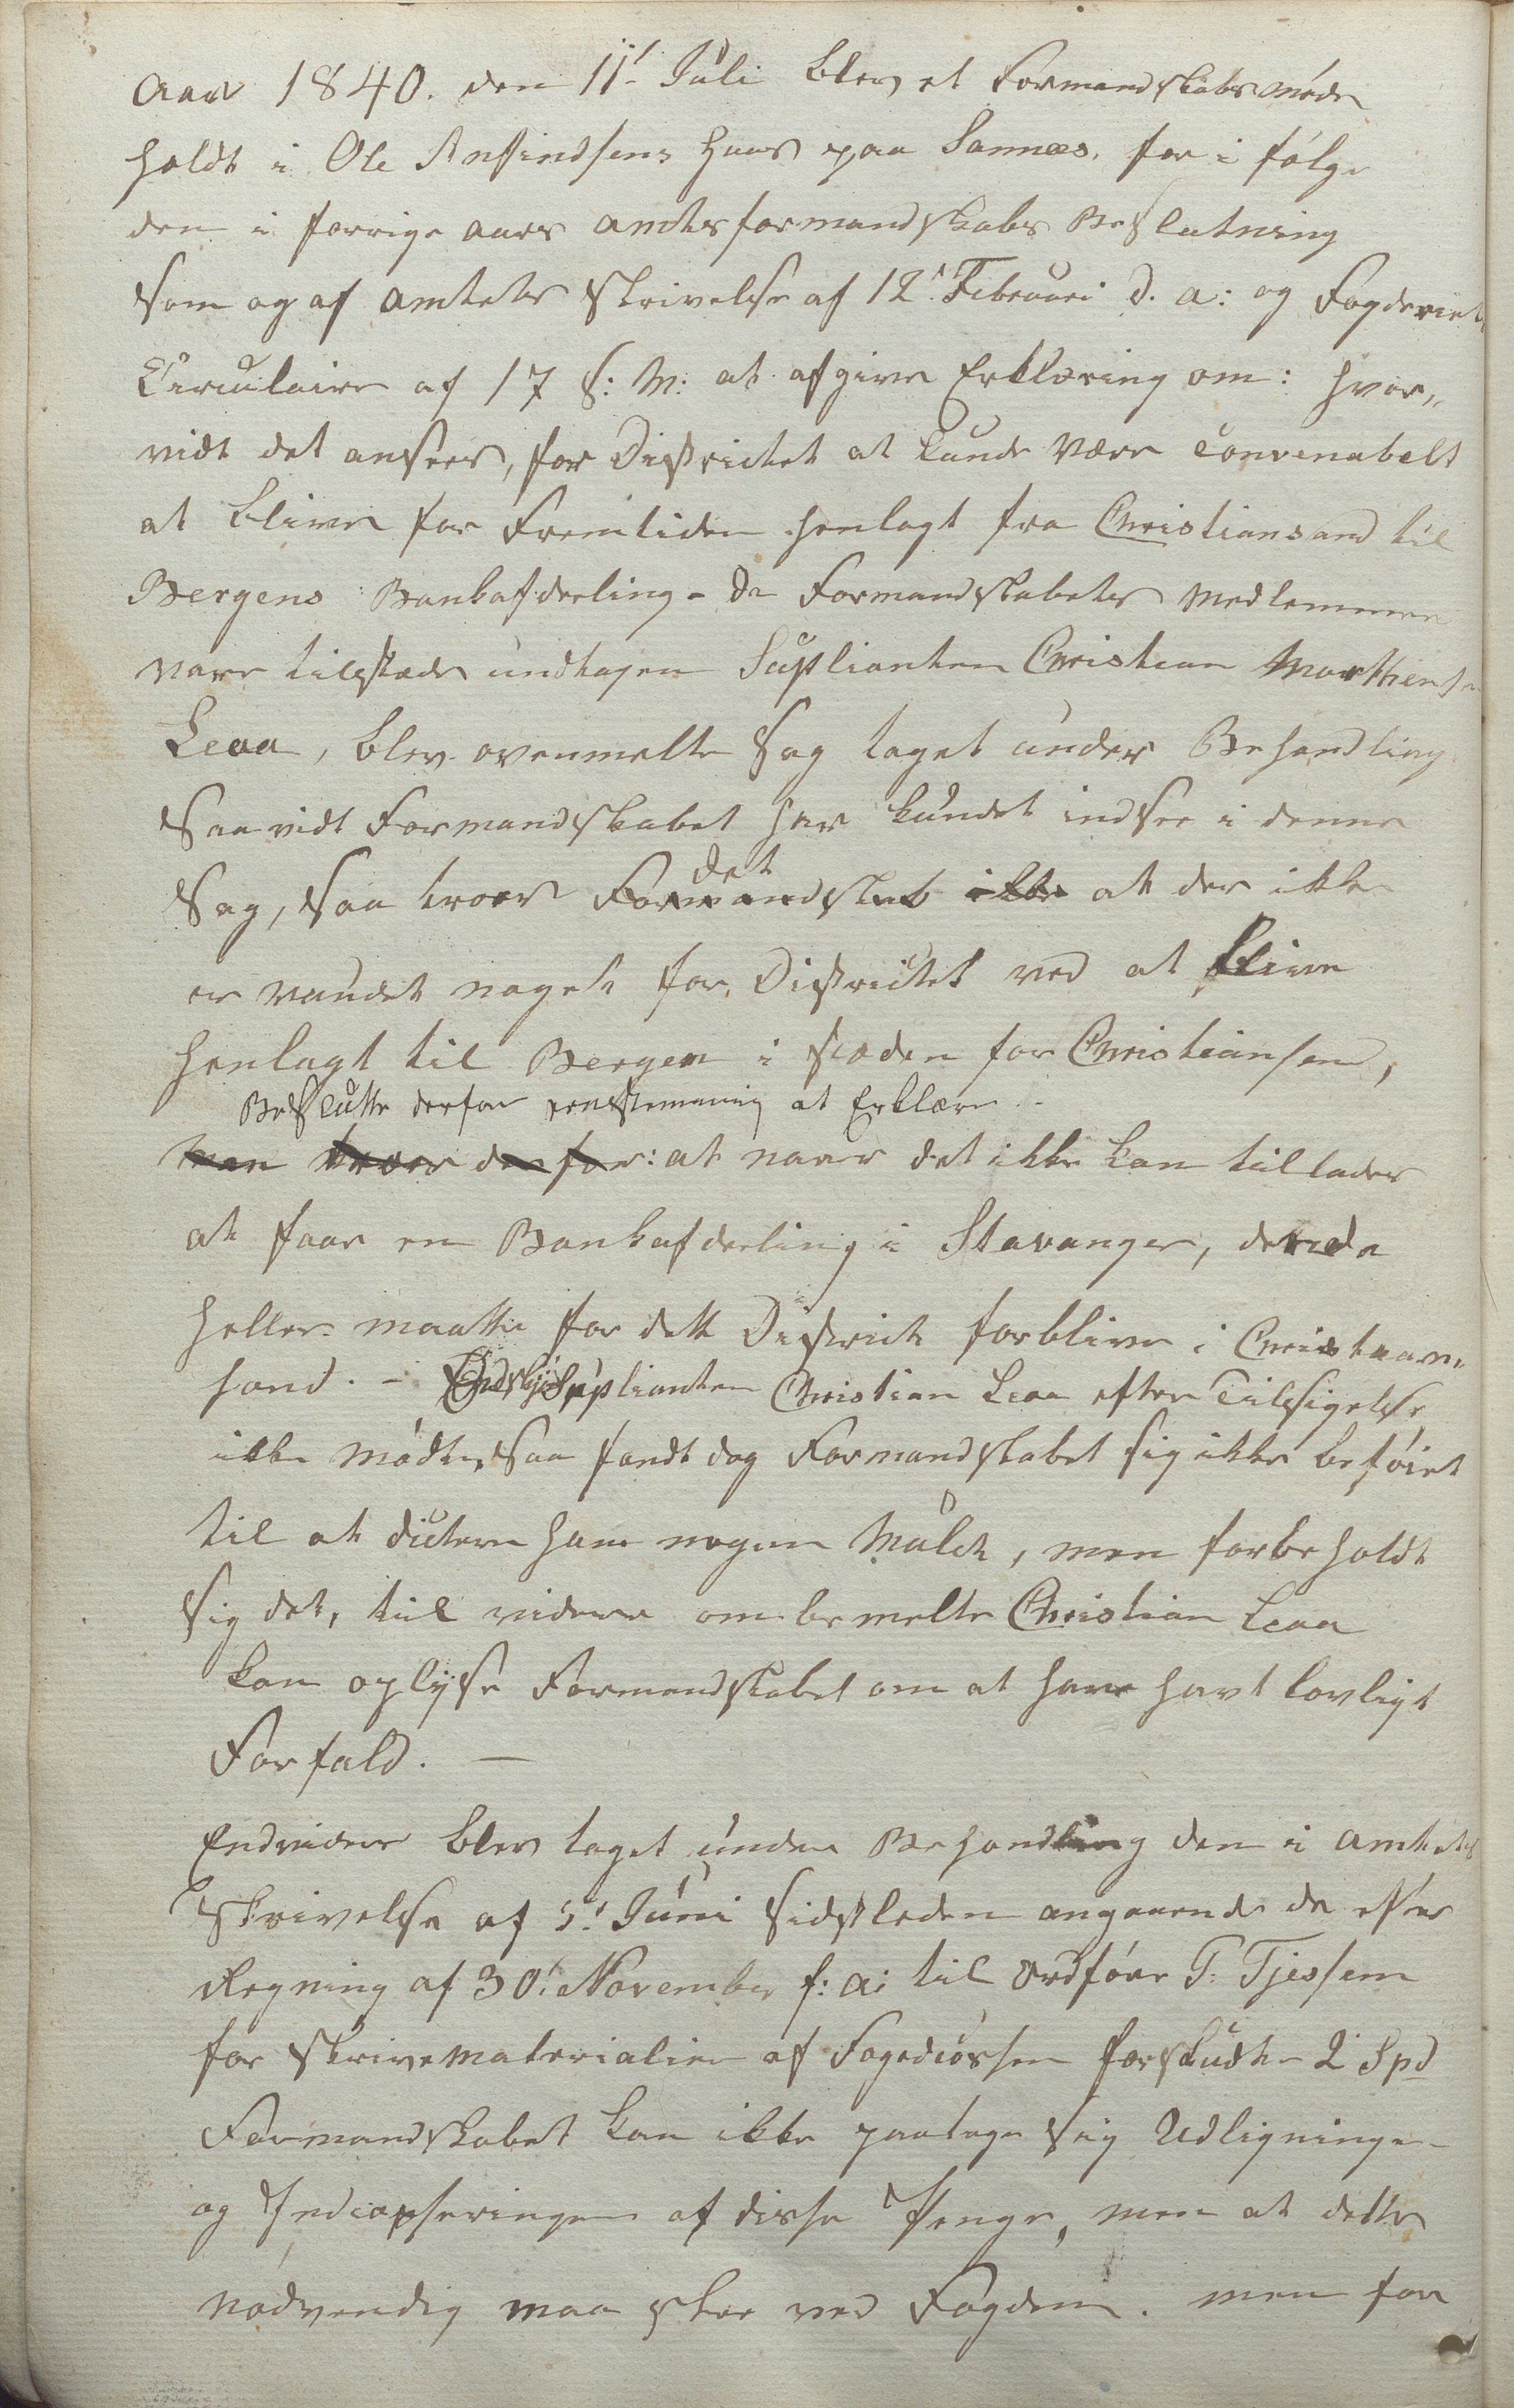 Aar 1840. den 11' Juli blev et Formandskabsmøde
holdt i Ole Ansindsens Huus paa Sannæs, for i følge
den i forrige aars amtsformandskabs Beslutning
som og af amtets Skrivelse af 12' Februari d. a: og Fogderiets
Circulaire af 17 s: M: at afgive Erklæring om: hvor„
vidt det ansees, for Districtet at kunde være convenabelt
at blive for Fremtiden henlagt fra Christiansand til
Bergens Bankafdeeling - De Formandskabets Medlemmer
vare tilstæde undtagen Suplianten Christian Morthens
Leaa, blev ovenmelte Sag taget under Behandling
Saavidt Formandskabet har kundet indsee i denne
Sag, saa troer Formandskab det ikke at der ikke
er vundet noget for Districtet ved at blive
henlagt til Bergen i stæden for Christiansand,
Beslutte derfor eenstemmig at Erklære
Man troer derfor: at naar det ikke kan tillades
at faae en Bankafdeeling i Stavanger, det da
heller maatte for dette District forblive i Christian„
sand. - Endskjønt Suplianten Christian Leaa efter Tilsigelse
ikke mødte, saa fandt dog Formandskabet sig ikke beføiet
til at dictere ham nogen Mulct, men forbeholdt
sig det, til videre ombemelte Christian Leaa
kan oplyse Formandskabet om at have havt lovligt
Forfald. —
Endvidere blev taget under Behandling den i Amtets
Skrivelse af 5' Juni sidstleden angaaende de efter
Regning af 30' November f: a: til Ordfører T. Tjessem
for Skrivematerialier af Fogedcassen forskudte 2 Spd
Formandskabet kan ikke paatage sig Udligningen
og Indcasseringen af disse Penge, men at dette
nødvendig maa skee ved Fogden. men for